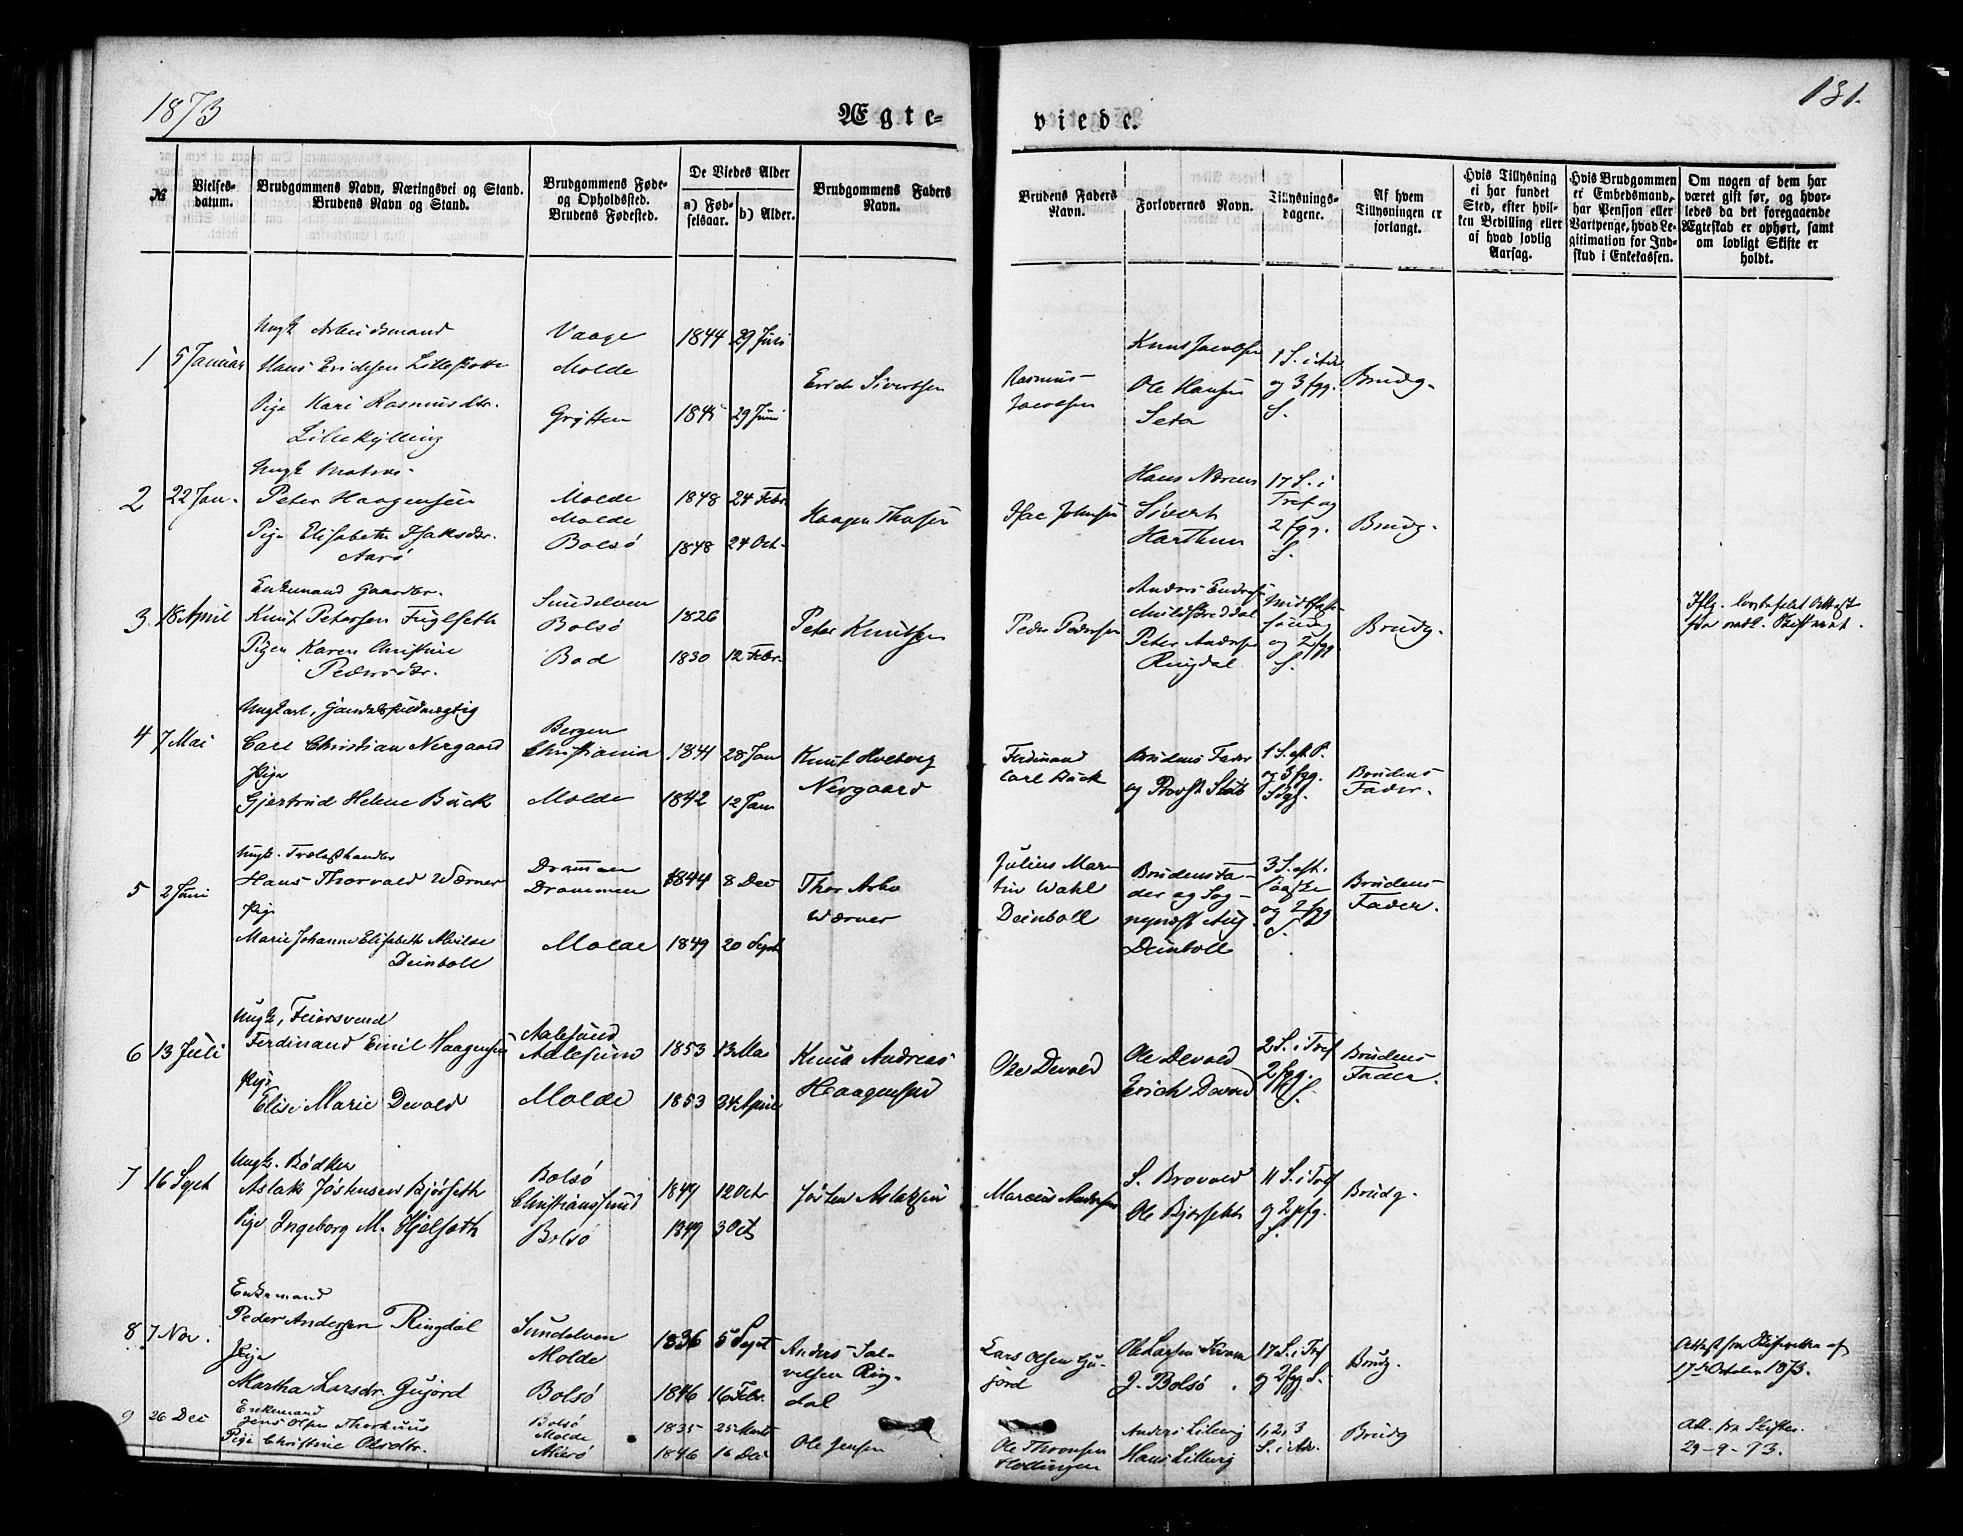 1873
Ægte-
viede.
131.
№
Vielses-
datum.
Brudgommens Navn, Næringsvei og Stand.
Brudens Navn og Stand.
Brudgommens Føde-
og Opholdssted.
Brudens Fødested.
De Viedes Alder
a) Fød-
selsaar.
b) Alder.
Brudgommens Faders
Navn.
Brudens Faders
Navn.
Forlovernes Navn.
Tillysnings-
dagene.
Af hvem
Tillysningen er
forlangt.
Hvis Tillysning
ei har fundet
Sted, efter hvil-
ken Bevilling eller
af hvad lovlig
Aarsag.
Hvis Brudgommen
er Embedsmand,
har Pension eller
Vartpenge, hvad Le-
gitimation for Ind-
skud i Enkekassen.
Om nogen af dem har
været gift før, og hvor-
ledes da det foregaaende
Ægteskab er ophørt, samt
om lovligt Skifte er
holdt.
1
5 Januar
Ungk Arbeidsmand
Hans Erichsen Lilleskotte
Pige Kari Rasmusdtr.
Lillekylling
Vaage
Molde
Grytten
1844
29 Juli
1845
29 Juni
Erich Sivertsen
Rasmus
Jacobsen
Knut Jacobsen
Ole Hansen
Seta
1 S. i Adv
og 3 fgg.
S.
Brudg.
2
22 Jan.
Ungk Matros
Peter Haagensen
Pige Elisabeth Isaksdr.
Aarø
Molde
Molde
Bolsø
1848
24 Febr.
1848
24 Oct.
Haagen
Isac Johnsen
Hans
Sivert
Harthun
17 S. i
Tref og
2 fgg.
S.
Brudg.
3
18 April
Enkemand Gaardbr.
Knut Petersen Fuglseth
Pigen Karen Christine
Pedersdtr.
Sundelven
Bolsø
Bod
1826
1830
12 Febr.
Peter Knutsen
Peder Pedersen
Anders
Peter Anders
Ringdal
og 2 fgg
S.
Brudg.
4
7 Mai
Ungkarl,
Carl Christian Nergaard
Pige
Gjertrud Helene Bäck
Bergen
Christiania
Molde
1841
28 Jan
1842
12 Jan
Knut Holberg
Nergaard
Ferdinand
Carl Bäck
Brudens Fader
og Provst
1 S. eft. P.
og 3 fgg.
Brudens
Fader.
5
2 Juni
Ungk. Trælasthandler
Hans Thorvald Wærner
Pige
Marie Johanne Elisabeth Alvilde
Deinboll
Drammen
Drammen
Molde
1844
8 Dec
1849
20 Sept
Thor Arbo
Wærner
Julius Mar-
tin Wahl
Deinboll
Brudens Fa-
der og Sog-
nepræst Aug.
Deinboll
3 S. eft.
Paaske
og 2 fgg
S.
Brudens
Fader.
6
13 Juli
Ungk, Feiersvend
Ferdinand Emil Haagensen
Pige
Elise Marie Devold
Aalesund
Aalesund
Molde
1853
13 Mai
1853
April
Knud Andreas
Haagensen
Ole Devold
Ole Devold
Erich Devold
2 S. i Tref
2 fgg.
S.
Brudens
Fader.
7
16 Sept
Ungk. Bødker
Aslak Jostensen Bjørseth
Pige Ingeborg M. Hjelseth
Bolsø
Christianssund
Bolsø
1849
12 Oct
1849
3 Oct
Josten Aslaksen
Marcus Andersen
S. Brovold
Ole Bjørseth
11 S. i Tref
g 2 fg.
S.
Brudg.
8
7 Nov.
Enkemand
Peder Andersen Ringdal
Pige
Martha Larsdr. Gujord
Sundelven
Molde
Bolsø
1836
5 Sept
1846
16 Febr.
Anders Sal-
velsen Ring-
dal
Lars Olsen Gu-
jord
Ole Larsen
J. Bolsø
17 S. i Tref
g 2 fgg. S.
Brudg.
Attest fra Skifteretten af
17de October 1873.
9
26 Dec
Enkemand
Jens Olsen Thorhuus
Pige Christine Olsdtr.
Bolsø
Molde
Akerø
1835
25 Marts
1846
16 Dec
Ole Jensen
Ole
Anders Lillevig
Hans Lillevig
1, 2, 3
S. i Adv.
Brudg
Att. fra Skifter.
29-9-73.